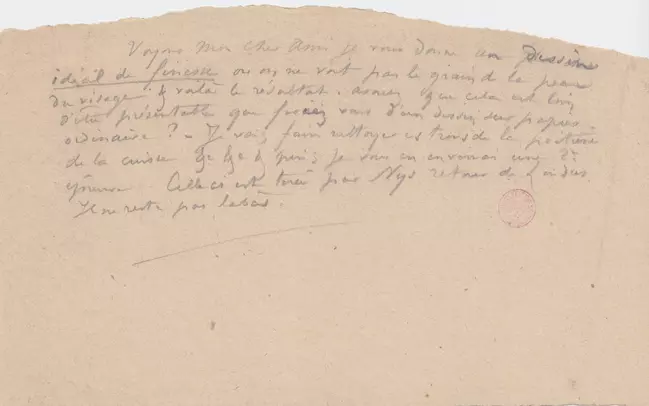 Voyons Mon cher Ami je vous donne un Dessin
idéal de finesse ou on ne voit pas le grain de la peau
du visage & voilà le résultat. avouez que cela est loin
d'être présentable que feriez vous d'un dessin sur papier
ordinaire? - Je vais faire nettoyer les trous de la poitrine
de la cuisse &c &c & puis je vous en enverrai une 2e
épreuve. Celle ci est tirée par Nys retour de
Il ne reste pas labas.